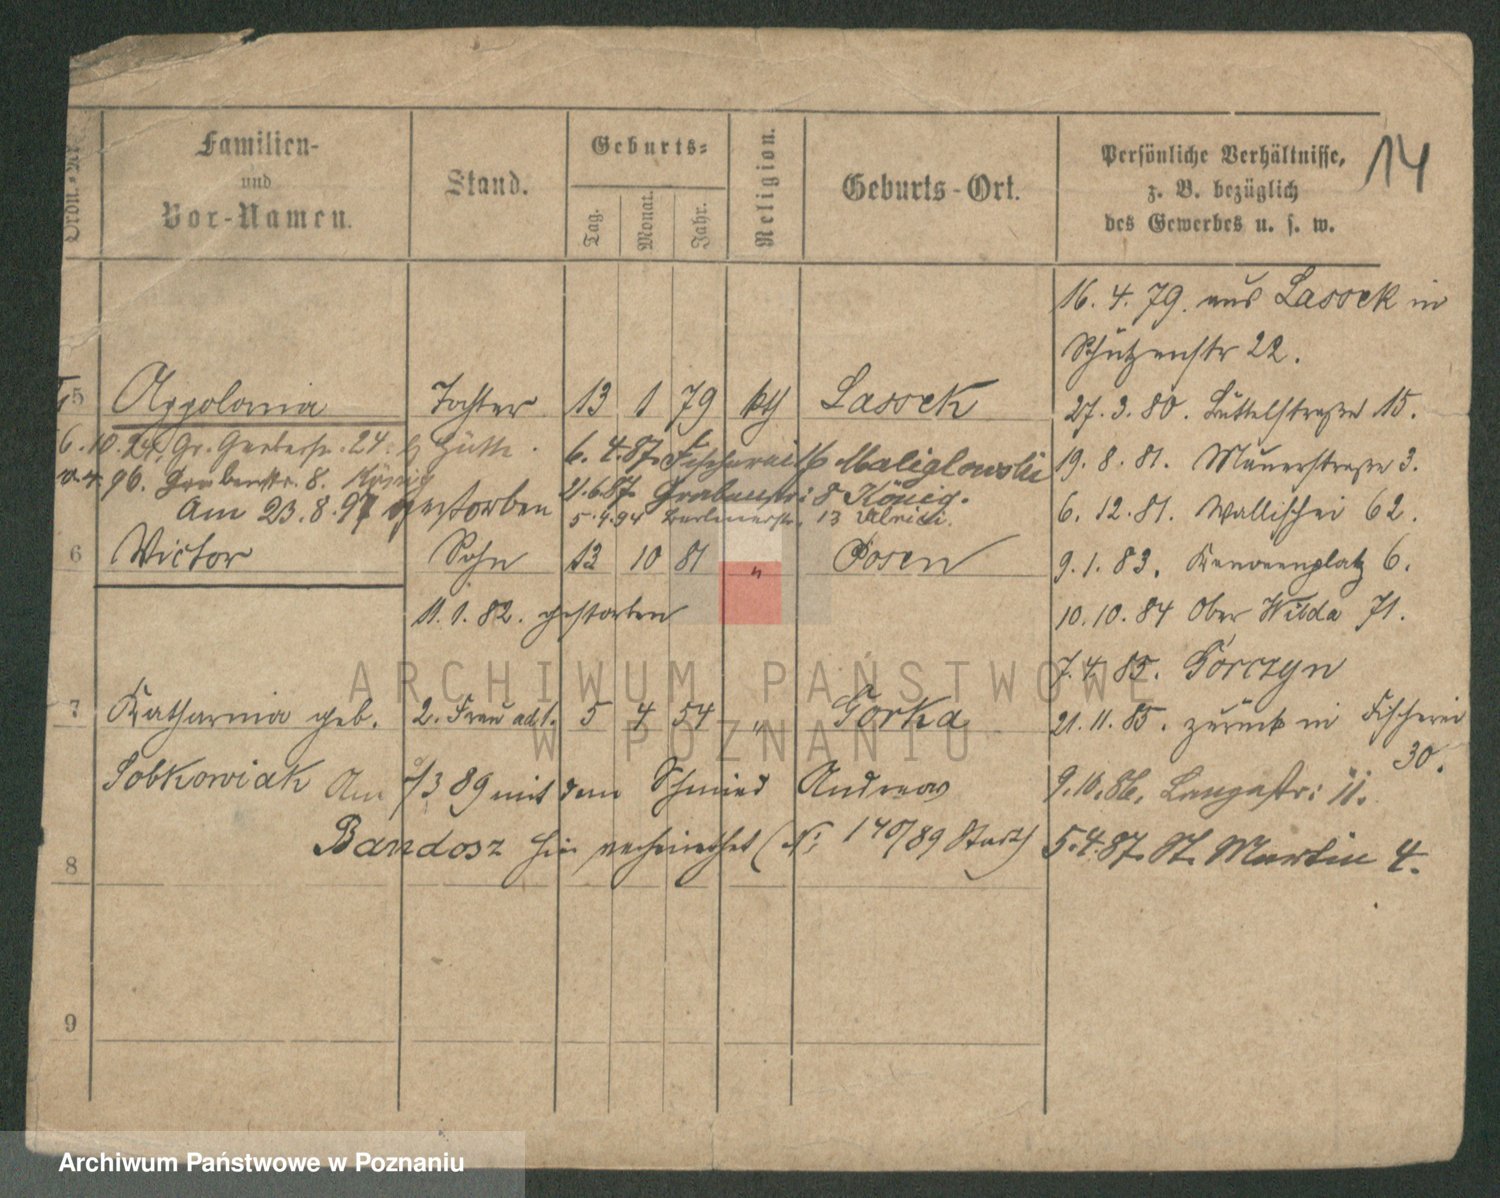 Ordn.-Nr.
Familien-
und
Vor-Namen.
Stand.
Geburts-
Tag.
Monat.
Jahr.
Religion.
Geburts-Ort.
Persönliche Verhältnisse,
z. B. bezüglich
des Gewerbes u. s. w.
14
16. 4. 79. aus Lassek in
Schützenstr 22.
5 Appolonia Tochter 13 1 79 kth Lassek
27. 3. 80. Büttelstraße 15.
6. 10. 24. Gr. Gerberstr. 24. b Hütte.
6. 4. 87. Fischerei 1/2 Maliglowski
19. 8. 81. Mauerstraße 3.
4. 96. Grabenstr. 8. König
21. 6. 87. Grabenstr: 8 König.
Am 23. 8. 97 gestorben
5. 4. 94 Berlinerstr. 13 Ulrich.
6. 12. 81. Wallischei 62.
6 Victor Sohn 12 10 81 " Posen
9. 1. 83. Kanonenplatz 6.
11. 1. 82. gestorben
10. 10. 84 Ober Wilda 71.
7. 4. 85. Gorczyn
7 Katharina geb. 2. Frau 5 4 54 " Gorka
21. 11. 85. zurück in Fischerei
30.
Sobkowiak Am /3 89 mit dem Schmied Andreas
9. 10. 86. Langestr: 11.
Bandosz hier verheirathet (N: 140/89 Start)
5. 4. 87. St. Martin 4.
8
9
ARCHIWUM PAŃSTWOWE
W POZNANIU
Archiwum Państwowe w Poznaniu